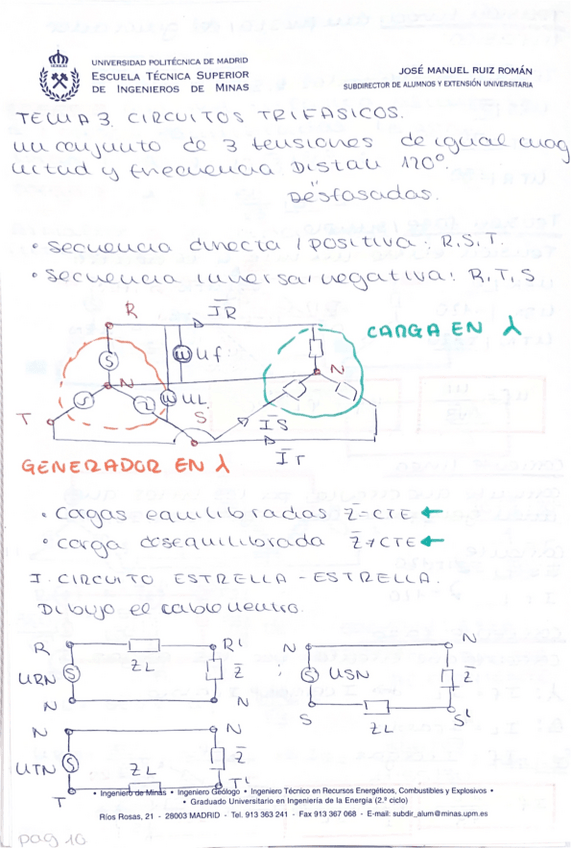 UNIVERSIDAD POLITÉCNICA DE MADRID
ESCUELA TÉCNICA SUPERIOR
DE INGENIEROS DE MINAS
JOSÉ MANUEL RUIZ ROMÁN
SUBDIRECTOR DE ALUMNOS Y EXTENSIÓN UNIVERSITARIA
TEMA 3. CIRCUITOS TRIFASICOS.
un conjunto de 3 tensiones de igual mag
nitud y frecuencia. Distan 120°.
"
Desfasadas.
• secuencia directa / positiva: R,S,T.
• secuencia inversa/negativa: R,T,S
R
I̅R
CARGA EN λ
Uf
N
N
T
UL
S
I̅S
I̅T
GENERADOR EN λ
• cargas equilibradas Z̅=CTE ←
• carga desequilibrada Z̅≠CTE ←
I. CIRCUITO ESTRELLA - ESTRELLA.
Dibujo el cable neutro.
R
R'
N
N
URN
ZL
Z̅
;
USN
Z̅
N
N
S
ZL
S'
N
N
UTN
ZL
Z̅
T
T'
• Ingeniero de Minas • Ingeniero Geólogo • Ingeniero Técnico en Recursos Energéticos, Combustibles y Explosivos •
• Graduado Universitario en Ingeniería de la Energía (2.º ciclo)
Ríos Rosas, 21 - 28003 MADRID - Tel. 913 363 241 - Fax 913 367 068 - E-mail: subdir_alum@minas.upm.es
pag 10